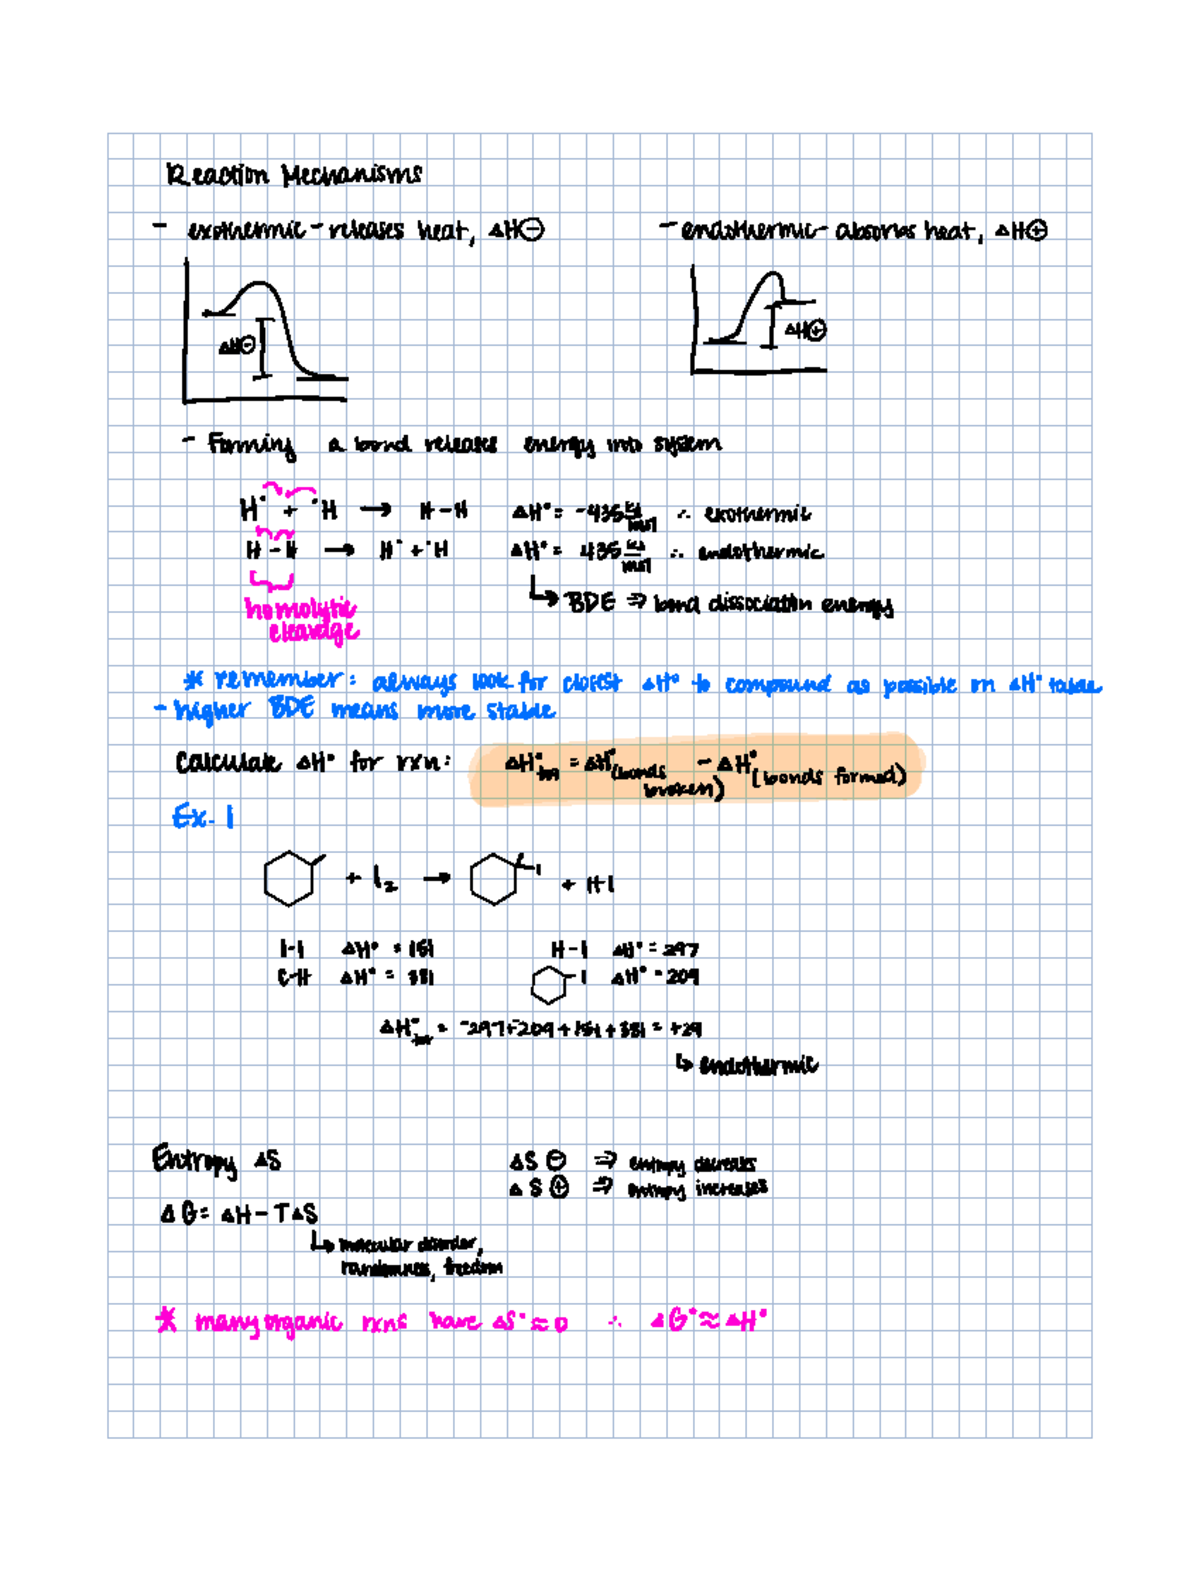 Reaction Mechanisms
- exothermic - releases heat, ΔH⊖
- endothermic - absorbs heat, ΔH⊕
ΔH⊖
ΔH⊕
- Forming a bond releases energy into system
H· + ·H → H-H ΔH° = -435 kJ/mol ∴ exothermic
H-H → H· + ·H ΔH° = 435 kJ/mol ∴ endothermic
↳ BDE ⇒ bond dissociation energy
homolytic
cleavage
* remember: always look for closest ΔH° to compound as possible on ΔH° table
- higher BDE means more stable
Calculate ΔH° for rxn: ΔH°tot = ΔH°(bonds broken) - ΔH°(bonds formed)
Ex. 1
+ I₂ → I + H-I
I-I ΔH° = 151
H-I ΔH° = 297
C-H ΔH° = 381
-I ΔH° = 209
ΔH°tot = -297+-209+151+381 = +29
↳ endothermic
Entropy ΔS
ΔS ⊖ ⇒ entropy decreases
ΔS ⊕ ⇒ entropy increases
ΔG = ΔH - TΔS
↳ molecular disorder,
randomness, freedom
* many organic rxns have ΔS° ≈ 0 ∴ ΔG° ≈ ΔH°